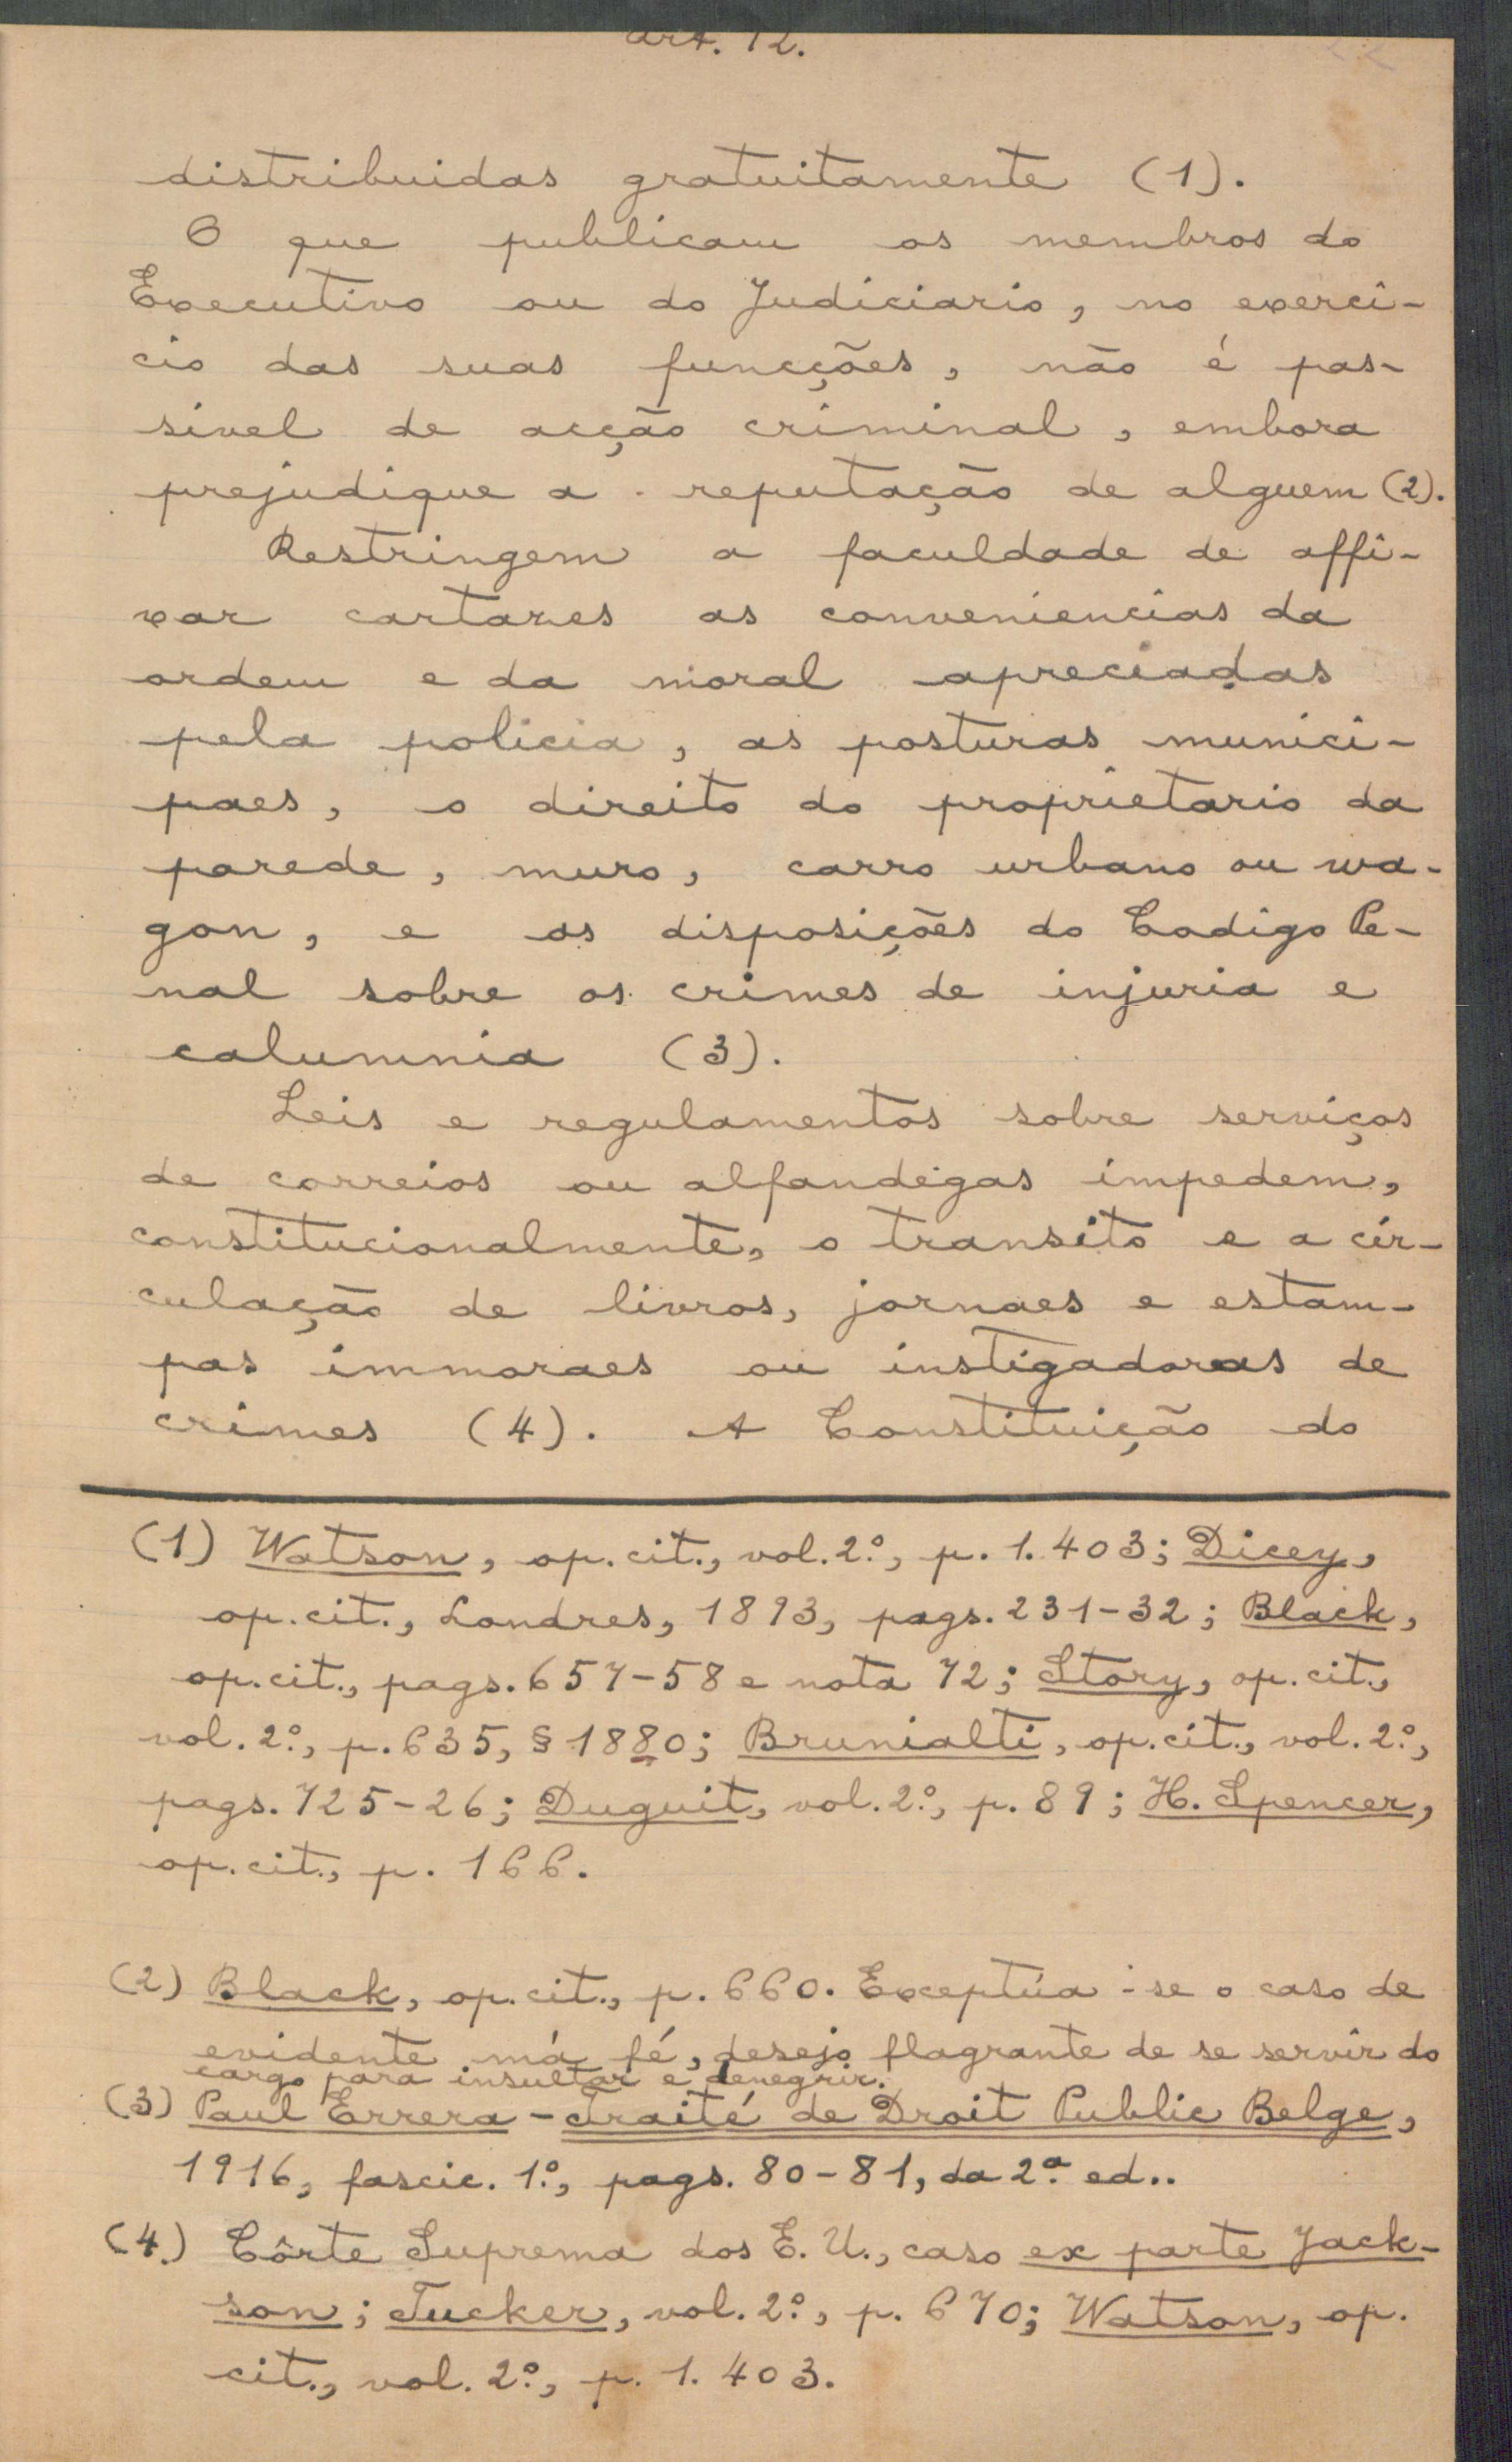 art. 72.
distribuidas gratuitamente (1).
O que publicam os membros do
Executivo ou do Judiciario, no exerci-
cio das suas funcções, não é pas-
sivel de acção criminal, embora
prejudique a reputação de alguem (2).
Restringem a faculdade de affi-
xar cartazes as conveniencias da
ordem e da moral apreciadas
pela policia, as posturas munici-
paes, o direito do proprietario da
parede, muro, carro urbano ou wa-
gon, e as disposições do Codigo Pe-
nal sobre os crimes de injuria e
calumnia (3).
Leis e regulamentos sobre serviços
de correios ou alfandegas impedem,
constitucionalmente, o transito e a cir-
culação de livros, jornaes e estam-
pas immoraes ou instigadoras de
crimes (4). A Constituição do
(1) Watson, op. cit., vol. 2º, p. 1.403; Dicey,
op. cit., Londres, 1893, pags. 231-32; Black,
op. cit., pags. 657-58 e nota 72; Story, op. cit.,
vol. 2º, p. 635, § 1880; Brunialti, op. cit., vol. 2º,
pags. 725-26; Duguit, vol. 2º, p. 89; H. Spencer,
op. cit., p. 166.
(2) Black, op. cit., p. 660. Exceptúa-se o caso de
evidente má fé, desejo flagrante de se servir do
cargo para insultar e denegrir.
(3) Paul Errera - Traité de Droit Public Belge,
1916, fascic. 1º, pags. 80-81, da 2ª ed..
(4) Côrte Suprema dos E. U., caso ex parte Jack-
son; Tucker, vol. 2º, p. 670; Watson, op.
cit., vol. 2º, p. 1.403.